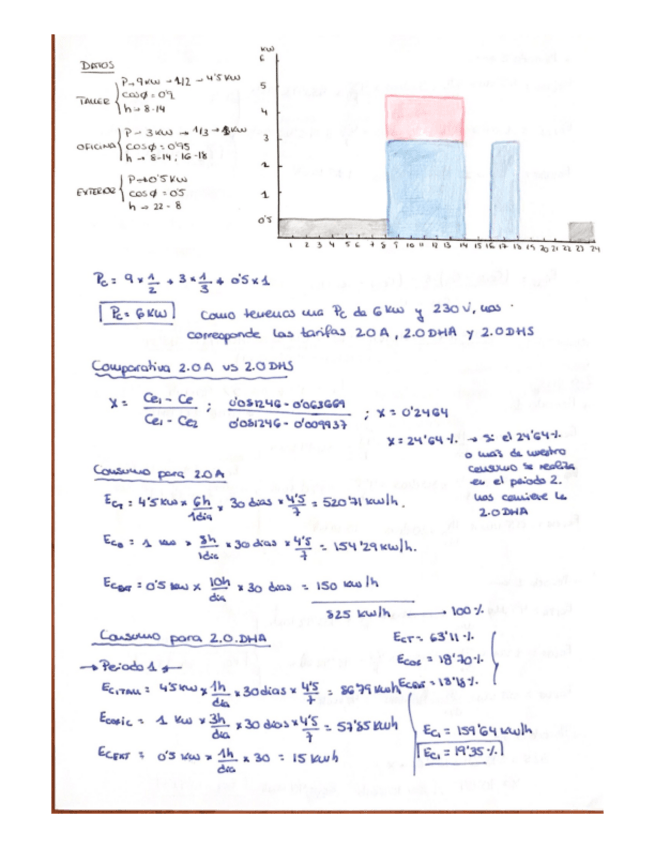 DATOS
TALLER { P→9 KW → 1/2 → 4'5 KW
cosφ = 0'9
h → 8-14
OFICINA { P → 3 KW → 1/3 → 1KW
cosφ = 0'95
h → 8-14; 16-18
EXTERIOR { P→0'5 KW
cosφ = 0'5
h → 22 - 8
KW
6
5
4
3
2
1
0'5
1 2 3 4 5 6 7 8 9 10 11 12 13 14 15 16 17 18 19 20 21 22 23 24
Pc = 9 × 1/2 + 3 × 1/3 + 0'5 × 1
Pc = 6 KW Como tenemos una Pc de 6 KW y 230 V, nos
corresponde las tarifas 2.0 A, 2.0 DHA y 2.0 DHS
Comparativa 2.0 A vs 2.0 DHS
X = Ce1 - Ce / Ce1 - Ce2 ; 0'081246 - 0'063669 / 0'081246 - 0'009937 ; X = 0'2464
X = 24'64 % → Si el 24'64 %
o más de nuestro
consumo se realiza
en el periodo 2.
nos conviene la
2.0 DHA
Consumo para 2.0 A
ECT = 4'5 KW × 6h/1día × 30 días × 4'5/7 = 520'71 KW/h.
ECO = 1 KW × 8h/1día × 30 días × 4'5/7 = 154'29 KW/h.
ECEXT = 0'5 KW × 10h/día × 30 días = 150 KW/h
825 KW/h → 100 %
Consumo para 2.0. DHA
ECT = 63'11 %
ECOF = 18'70 %
ECEXT = 18'18 %
→ Periodo 1
ECTALL = 4'5 KW × 1h/día × 30 días × 4'5/7 = 86'79 KWh
ECOFIC = 1 KW × 3h/día × 30 días × 4'5/7 = 57'85 KWh
ECEXT = 0'5 KW × 1h/día × 30 = 15 KWh
EC1 = 159'64 KW/h
EC1 = 19'35 %